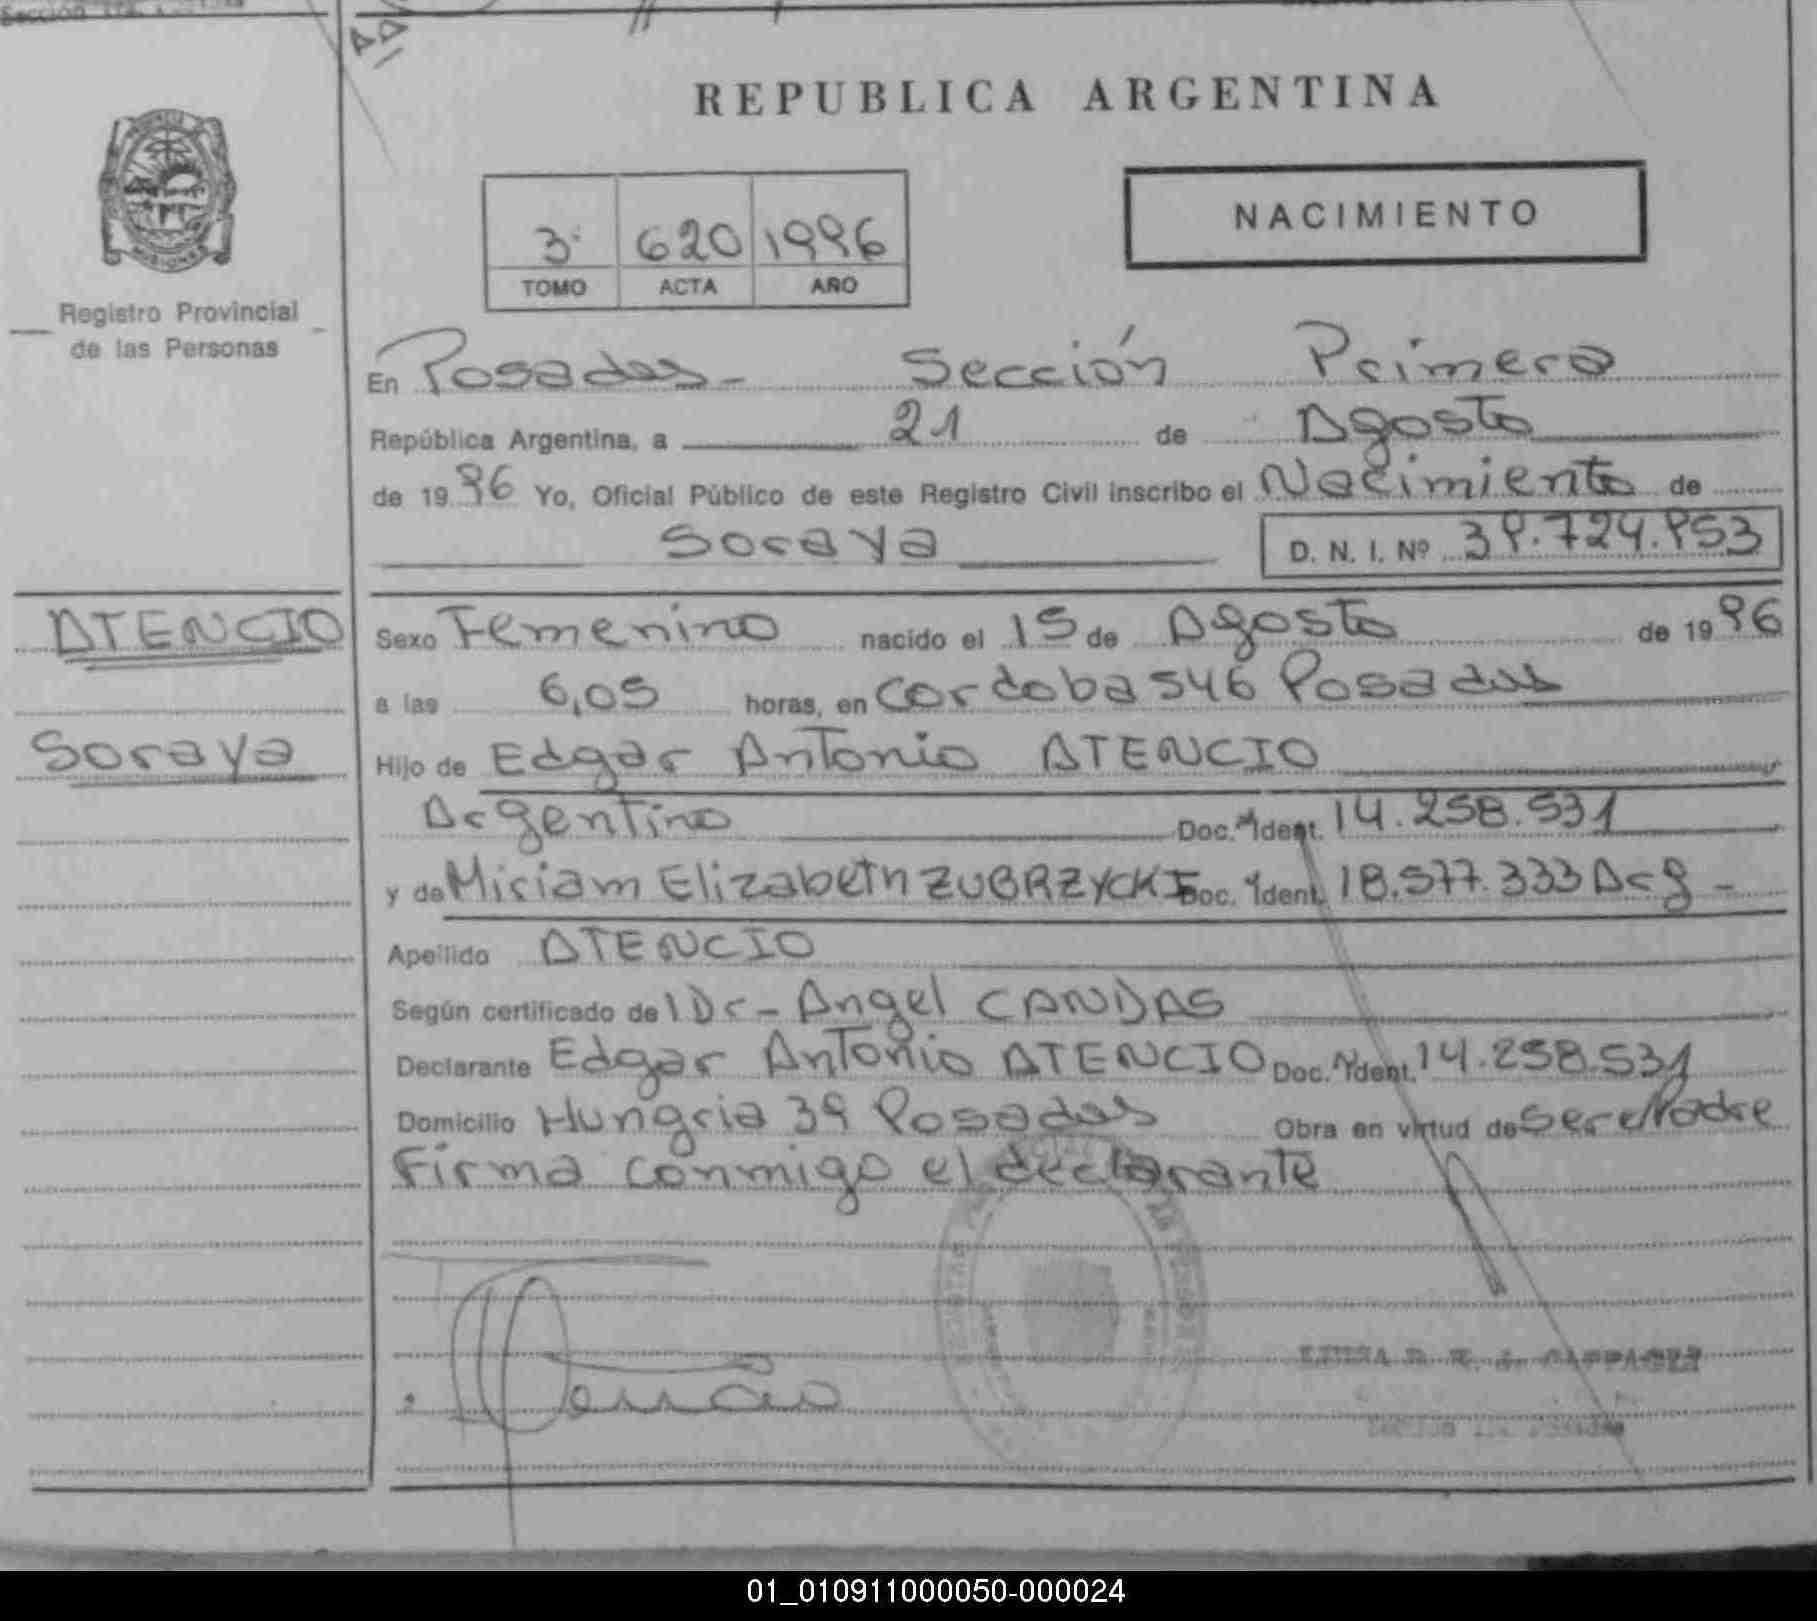 REPUBLICA ARGENTINA
NACIMIENTO
3 620 1996
TOMO ACTA AÑO
Registro Provincial
de las Personas
En Posadas - Sección Primera
República Argentina, a 21 de Agosto
de 1996 Yo, Oficial Público de este Registro Civil inscribo el Nacimiento de
Soraya D. N. I. Nº 39.724.953
ATENCIO
Soraya
Sexo Femenino nacido el 15 de Agosto de 1996
a las 6,05 horas, en Cordoba 546 Posadas
Hijo de Edgar Antonio ATENCIO
Argentino Doc. Ident. 14.258.531
y de Miriam Elizabeth ZUBRZYCKI Doc. Ident. 18.577.333 Arg -
Apellido ATENCIO
Según certificado de l Dr - Angel CANDAS
Declarante Edgar Antonio ATENCIO Doc. Ident. 14.258.531
Domicilio Hungria 39 Posadas Obra en virtud de ser el Padre
Firma conmigo el declarante
01_010911000050-000024